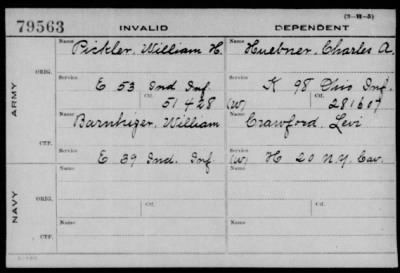 (3-11-3)
79563 INVALID DEPENDENT
ARMY
ORIG.
Name Pickler, William H. Name Huebner, Charles A.
Service E 53 Ind Inf Service K 98 Ohio Inf.
Ctf. 51428 (W) Ctf. 281607
CTF.
Name Barnhizer, William Name Crawford, Levi
E 39 Ind. Inf (W) H 20 N.Y. Cav.
NAVY
ORIG.
Name Name
Service Ctf. Service Ctf.
CTF.
Name Name